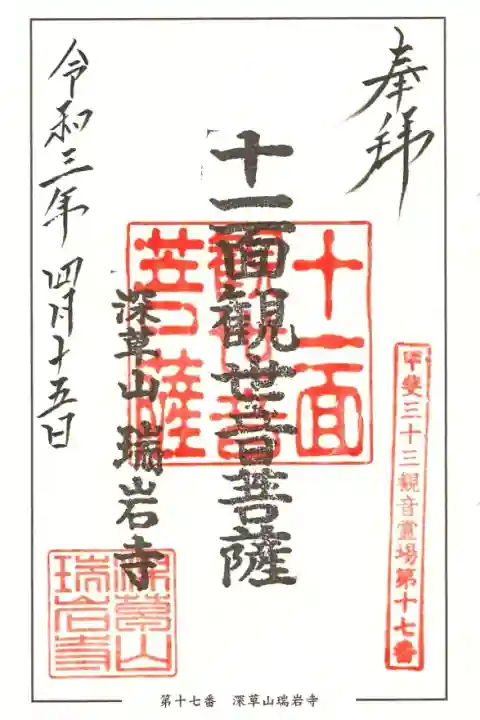 奉拝
甲斐三十三観音霊場第十七番
十一面観世音菩薩
十一面
観世音
菩薩
深草山瑞岩寺
深草山
瑞岩寺
令和三年四月十五日
第十七番　深草山瑞岩寺